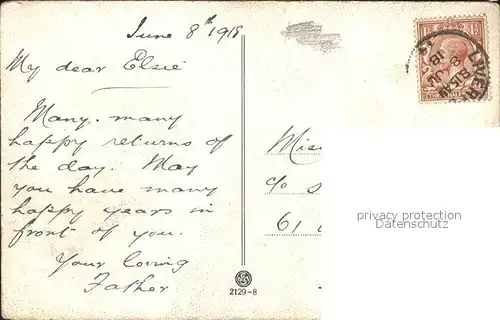 June 8th 1918
My dear Elsie
Many, many
happy returns of
the day. May
you have many
happy years in
front of you.
Your loving
Father
Mis
c/o S
61
LIVER
8 JU
18
privacy protection
Datenschutz
2129-8